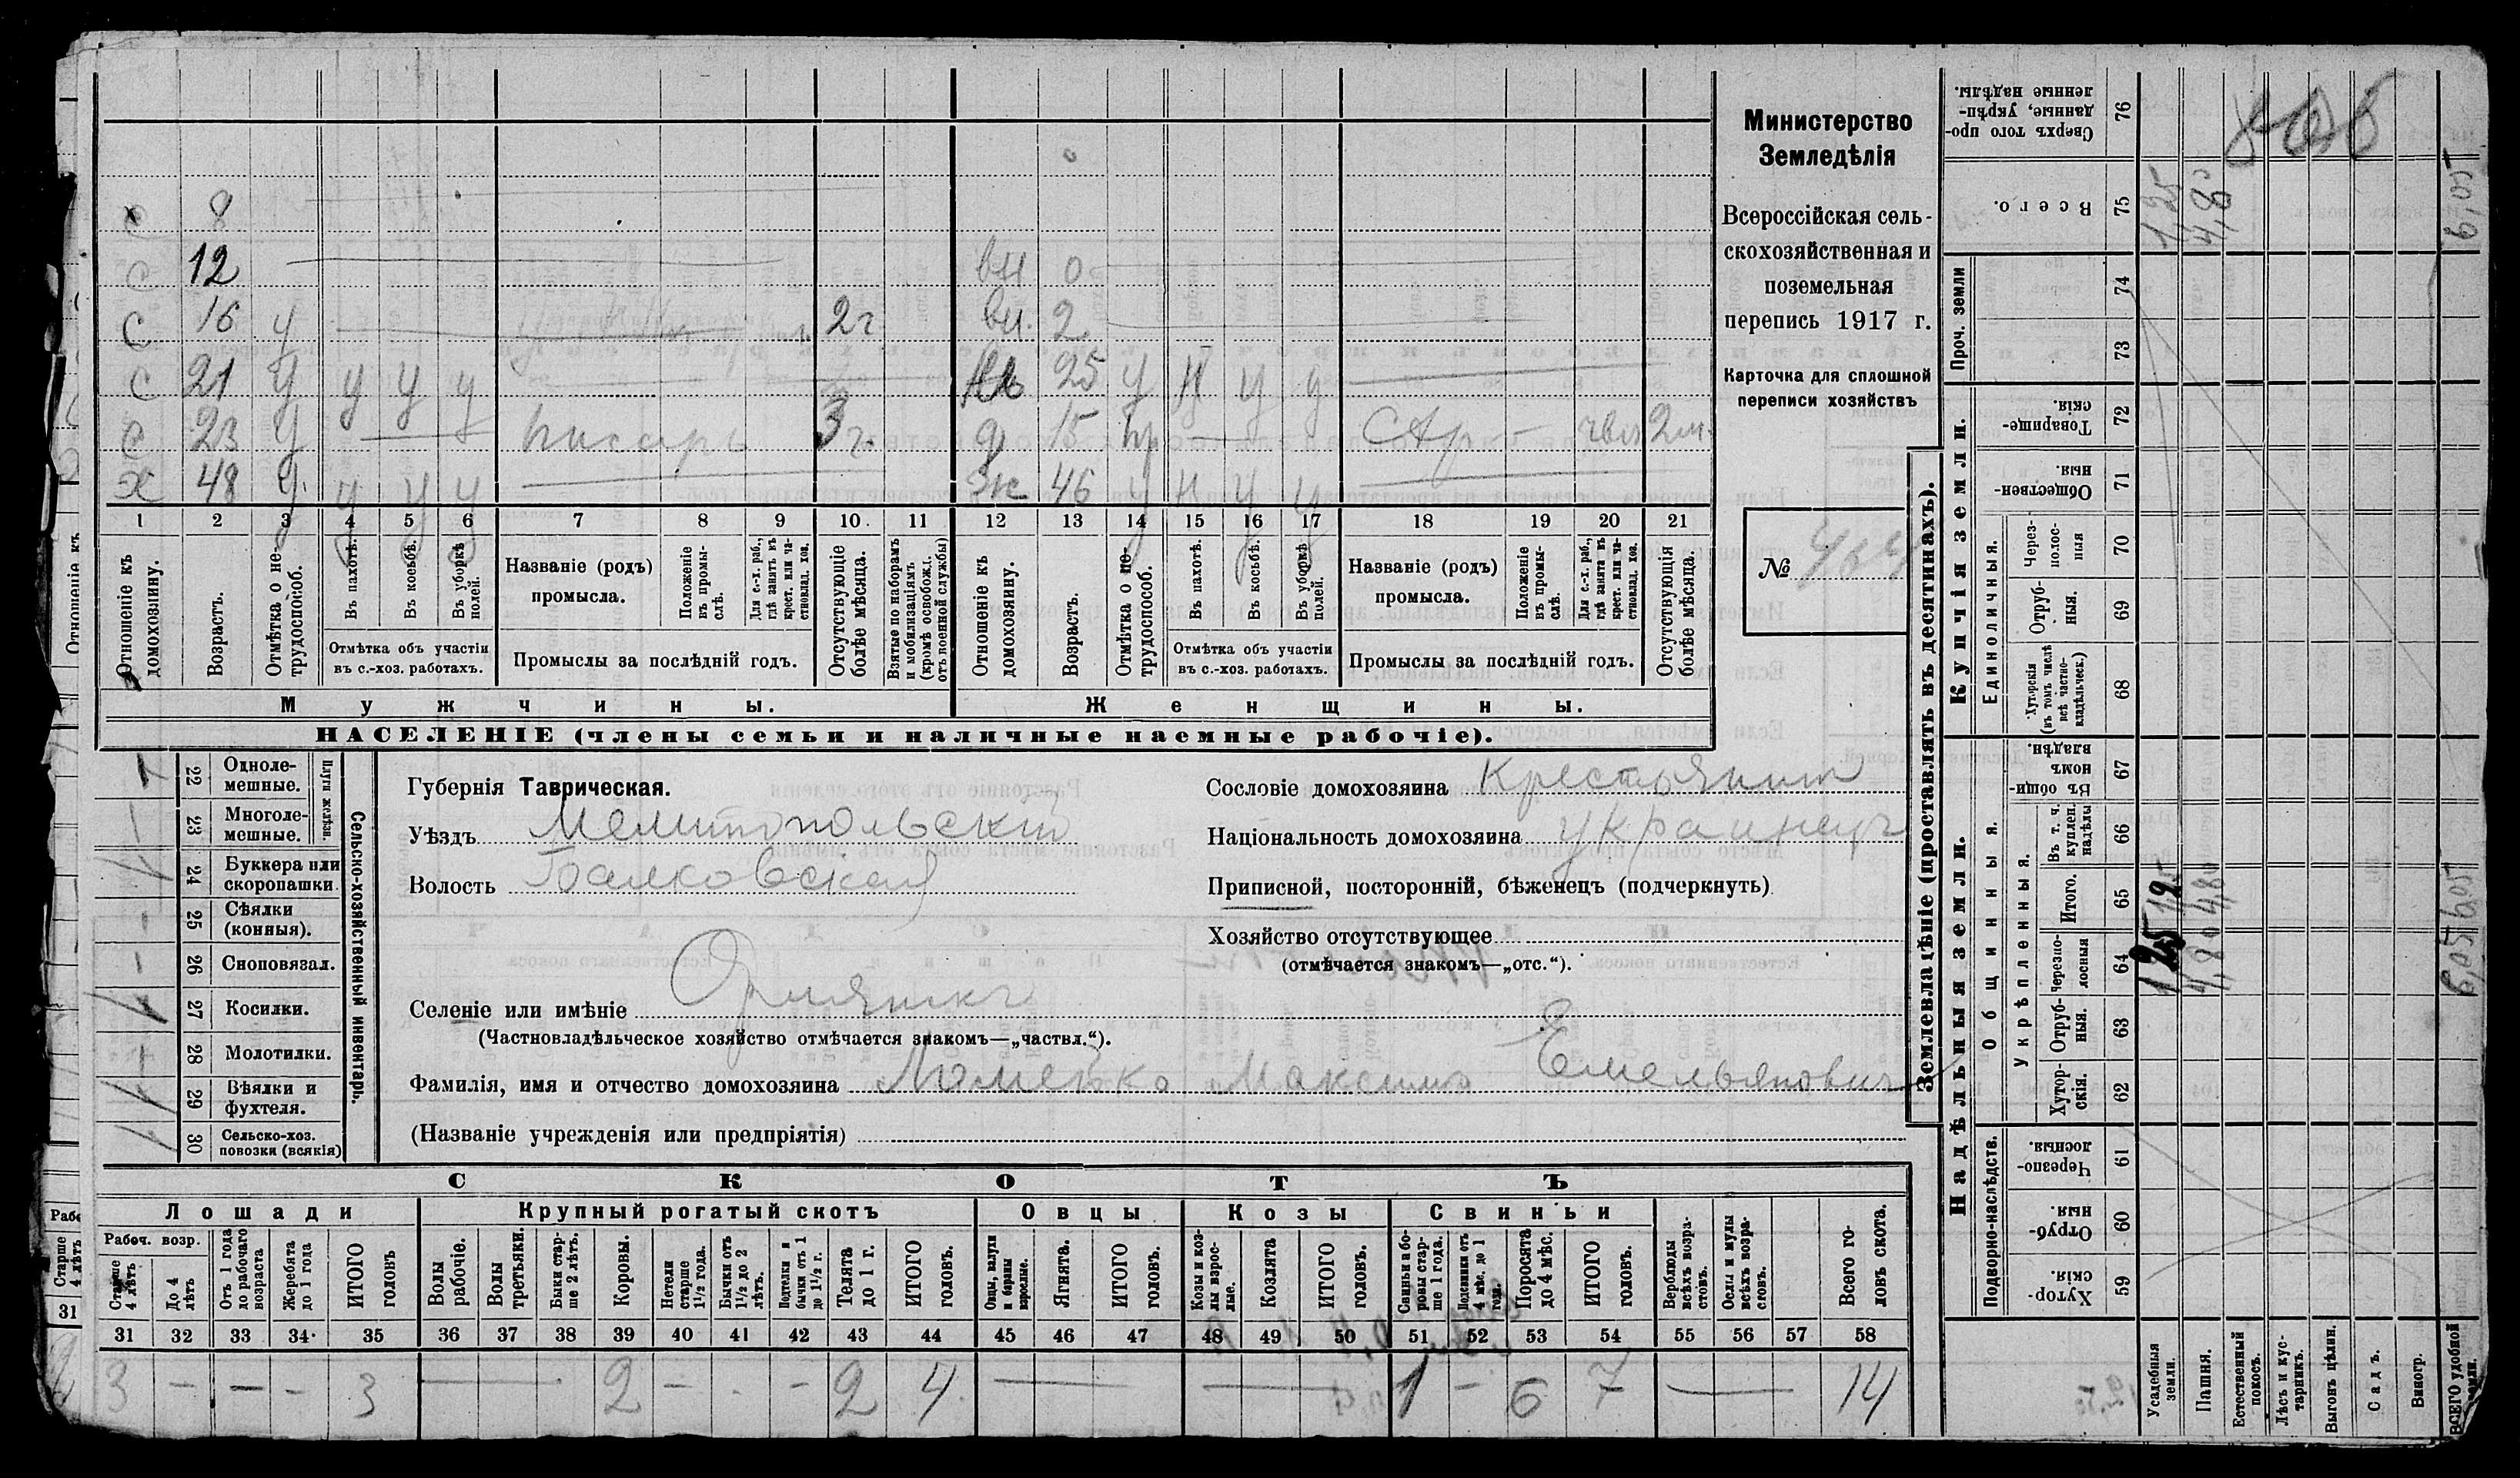 Министерство
Земледѣлія
Всероссійская сель-
скохозяйственная и
поземельная
перепись 1917 г.
Карточка для сплошной
переписи хозяйствъ
№
с 8
с 12 вн 0
с 16 у 2г вн. 2
с 21 у у у у 25 у н у у
с 23 у у писарь 3г. д 15 2м.
х 48 у у у у жк 46 у н у у
1 2 3 4 5 6 7 8 9 10 11 12 13 14 15 16 17 18 19 20 21
Отношеніе къ домохозяину.
Возрастъ.
Отмѣтка о не-трудоспособ.
Въ пахотѣ.
Въ косьбѣ.
Въ уборкѣ полей.
Отмѣтка объ участіи
въ с.-хоз. работахъ.
Названіе (родъ)
промысла.
Положеніе въ промы-слѣ.
Для с.-х. раб., гдѣ занятъ въ крест. или ча-стновлад. хоз.
Промыслы за послѣдній годъ.
Отсутствующіе болѣе мѣсяца.
Взятые по наборамъ и мобилизаціямъ (кромѣ освобожд. отъ военной службы)
Отношеніе къ домохозяину.
Возрастъ.
Отмѣтка о не-трудоспособ.
Въ пахотѣ.
Въ косьбѣ.
Въ уборкѣ полей.
Отмѣтка объ участіи
въ с.-хоз. работахъ.
Названіе (родъ)
промысла.
Положеніе въ промы-слѣ.
Для с.-х. раб., гдѣ занята въ крест. или ча-стновлад. хоз.
Промыслы за послѣдній годъ.
Отсутствующія болѣе мѣсяца.
Мужчины. Женщины.
НАСЕЛЕНІЕ (члены семьи и наличные наемные рабочіе).
Сельско-хозяйственный инвентарь.
Плуги желѣзн.
22 Одноле-мешные.
23 Многоле-мешные.
24 Буккера или скоропашки.
25 Сѣялки (конныя).
26 Сноповязал.
27 Косилки.
28 Молотилки.
29 Вѣялки и фухтеля.
30 Сельско-хоз. повозки (всякія)
Губернія Таврическая.
Уѣздъ Мелитопольскій
Волость Балковская
Селеніе или имѣніе
(Частновладѣльческое хозяйство отмѣчается знакомъ—„частвл.“).
Фамилія, имя и отчество домохозяина Максимъ Емельяновичъ
(Названіе учрежденія или предпріятія)
Сословіе домохозяина Крестьянин
Національность домохозяина украинец
Приписной, посторонній, бѣженецъ (подчеркнуть).
Хозяйство отсутствующее
(отмѣчается знакомъ—„отс.“).
СКОТЪ
Лошади Крупный рогатый скотъ Овцы Козы Свиньи
Рабоч. возр.
Старше 4 лѣтъ
До 4 лѣтъ
Отъ 1 года до рабочаго возраста
Жеребята до 1 года
ИТОГО головъ
Волы рабочіе.
Волы третьяки.
Быки стар-ше 2 лѣтъ.
Коровы.
Нетели старше 1½ года.
Бычки отъ 1½ до 2 лѣтъ.
Подтелки и бычки отъ 1 до 1½ г.
Телята до 1 г.
ИТОГО головъ.
Овцы, валухи и бараны взрослые.
Ягнята.
ИТОГО головъ.
Козы и коз-лы взрос-лые.
Козлята
ИТОГО головъ.
Свиньи и бо-ровы стар-ше 1 года.
Подсвинки отъ 4 мѣс. до 1 года.
Поросята до 4 мѣс.
ИТОГО головъ.
Верблюды всѣхъ возра-стовъ.
Ослы и мулы всѣхъ возра-стовъ.
Всего го-ловъ скота.
31 32 33 34 35 36 37 38 39 40 41 42 43 44 45 46 47 48 49 50 51 52 53 54 55 56 57 58
3 — — — 3 — 2 — - — 2 4 — — 1 — 6 7 — 14
Землевладѣніе (проставлять въ десятинахъ).
Надѣльныя земли. Купчія земли. Проч. земли
Подворно-наслѣдств.
Общинныя.
Укрѣпленныя.
Единоличныя.
59 Хутор-скія.
60 Отруб-ныя.
61 Черезпо-лосныя.
62 Хутор-скія.
63 Отруб-ныя.
64 Черезпо-лосныя
65 Итого.
66 Въ т. ч. куплен. надѣлы
67 Въ общи-номъ владѣн.
68 Хуторскія (въ томъ числѣ всѣ частно-владѣльческ.)
69 Отруб-ныя.
70 Через-полос-ныя
71 Обществен-ныя.
72 Товарище-скія.
73
74
75 Всего.
76 Сверхъ того про-данные, укрѣп-ленные надѣлы.
Усадебныя земли. 1,25 1,25 1,25
Пашня. 4,80 4,80 4,80
Естественный покосъ.
Лѣсъ и кус-тарникъ.
Выгонъ цѣлин.
Садъ.
Виногр.
ВСЕГО удобной земли. 6,05 6,05 6,05
Отношеніе къ
Старше 4 лѣтъ
31